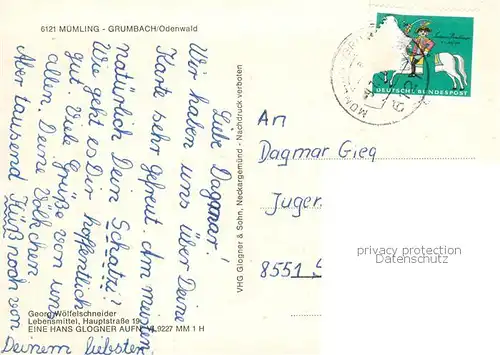 6121 MÜMLING - GRUMBACH/Odenwald
Liebe Dagmar!
Wir haben uns über Deine
Karte sehr gefreut. Am meisten
natürlich Dein Schatzi!
Wie geht es Dir hoffentlich
gut. Viele Grüße von uns
allen. Deine Völkchen
Aber tausend Küß noch von
Deinem liebsten
Georg Wölfelschneider
Lebensmittel, Hauptstraße 19
EINE HANS GLOGNER AUFN. VL9227 MM 1 H
VHG Glogner & Sohn, Neckargemünd - Nachdruck verboten
DEUTSCHE BUNDESPOST
An
Dagmar Gieg
Juger
8551
privacy protection
Datenschutz